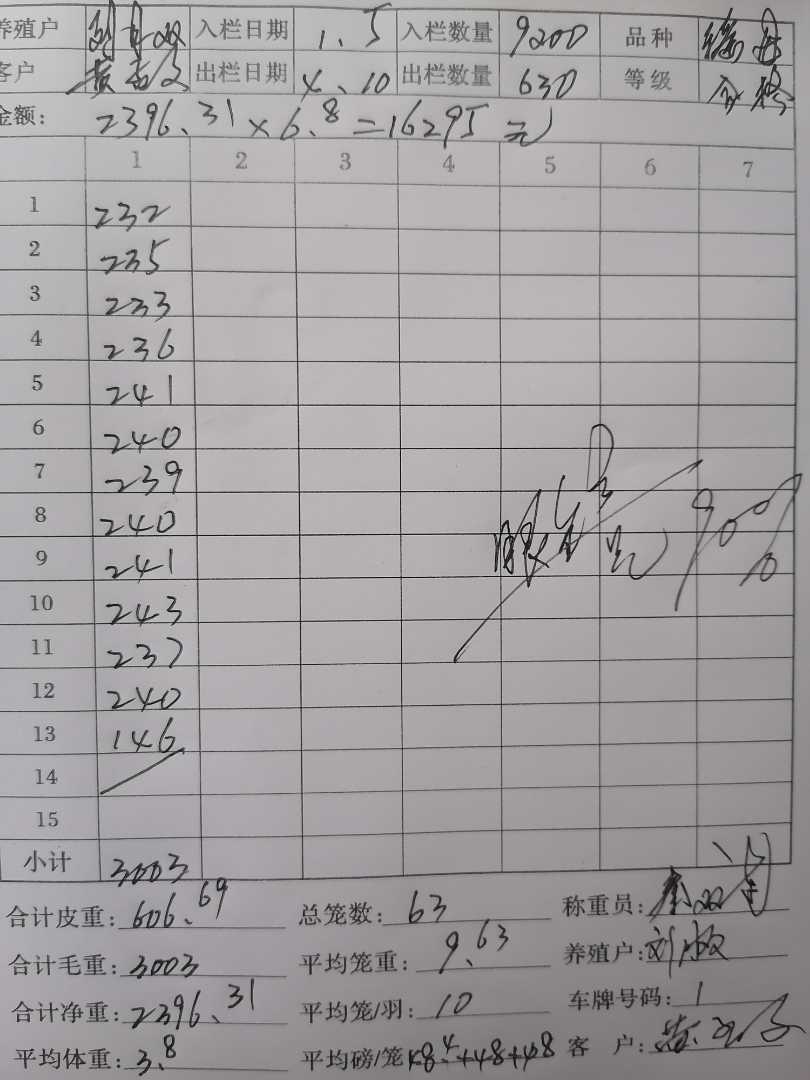 养殖户 入栏日期 1.5 入栏数量 9200 品种
客户 出栏日期 4.10 出栏数量 630 等级
金额: 2396.31×6.8=16295元
1 2 3 4 5 6 7
1 232
2 235
3 233
4 236
5 241
6 240
7 239
8 240
9 241
10 243
11 237
12 240
13 146
14
15
小计 3003
90%
合计皮重: 606.69 总笼数: 63 称重员:
合计毛重: 3003 平均笼重: 9.63 养殖户: 刘
合计净重: 2396.31 平均笼/羽: 10 车牌号码: 1
平均体重: 3.8 平均磅/笼 48.4+48+48 客 户: